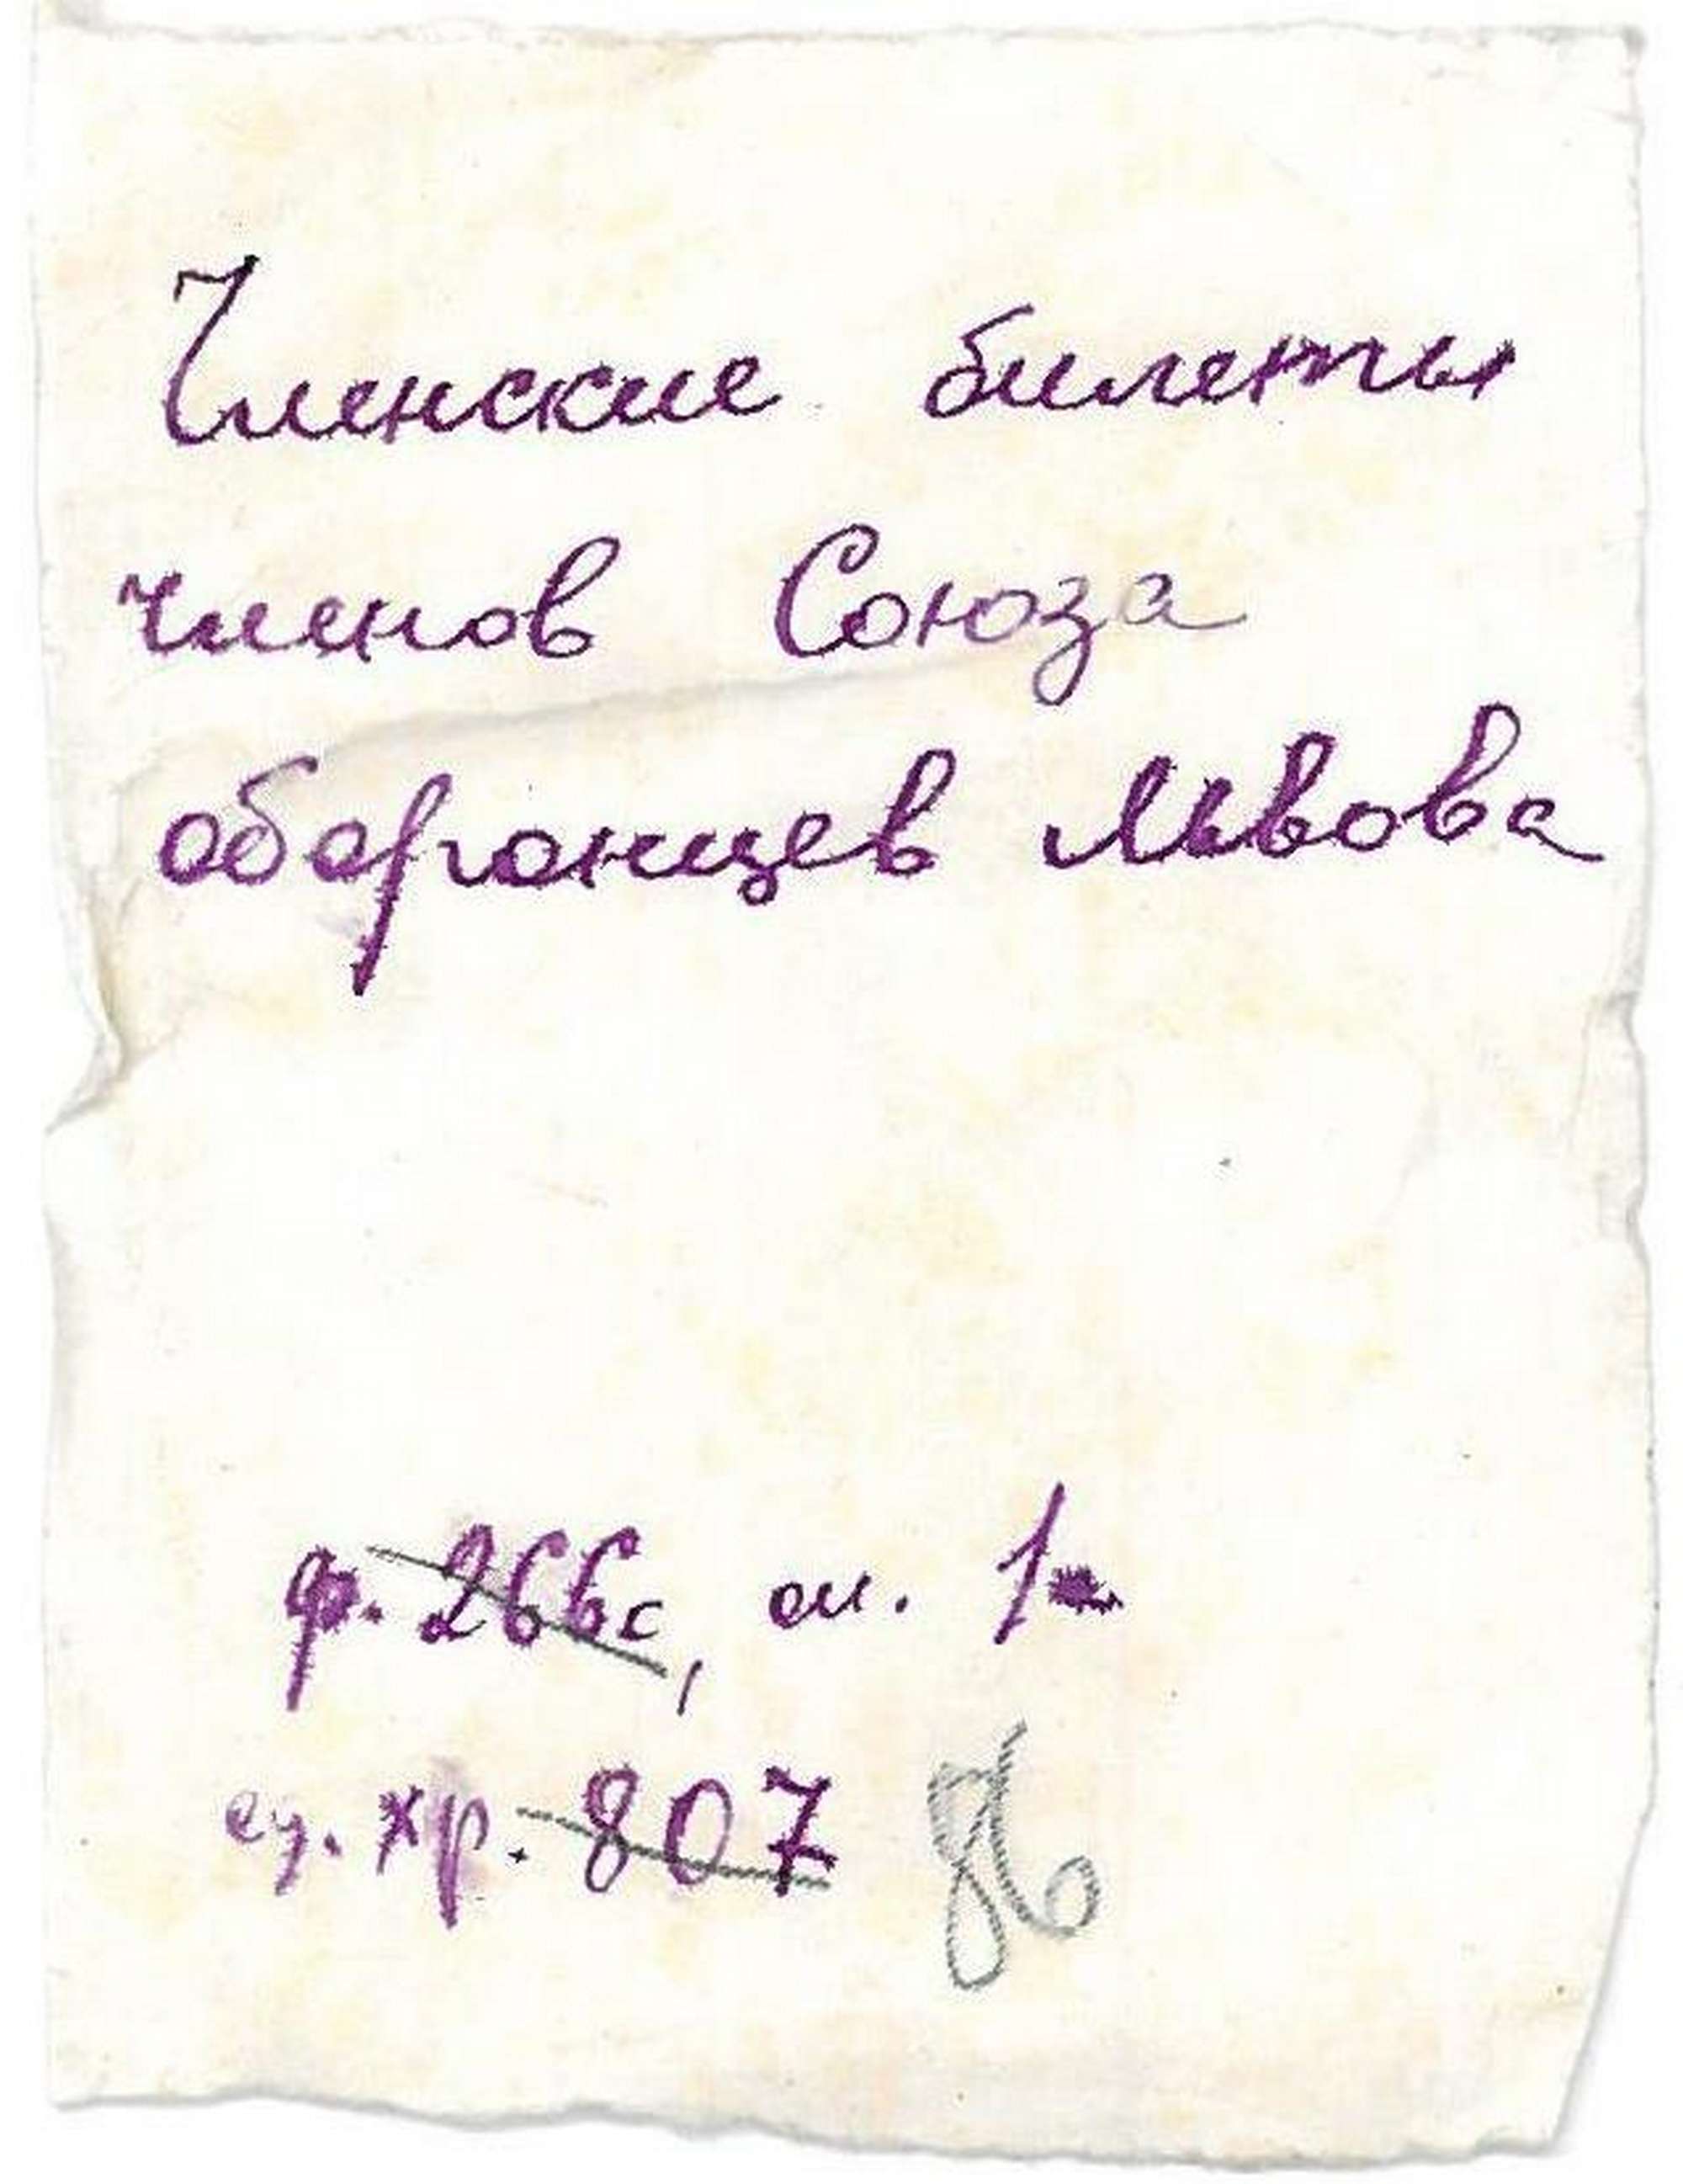 Членские билеты
членов Союза
оборонцев Львова
ф. 266с, оп. 1
ед. хр. 807 86